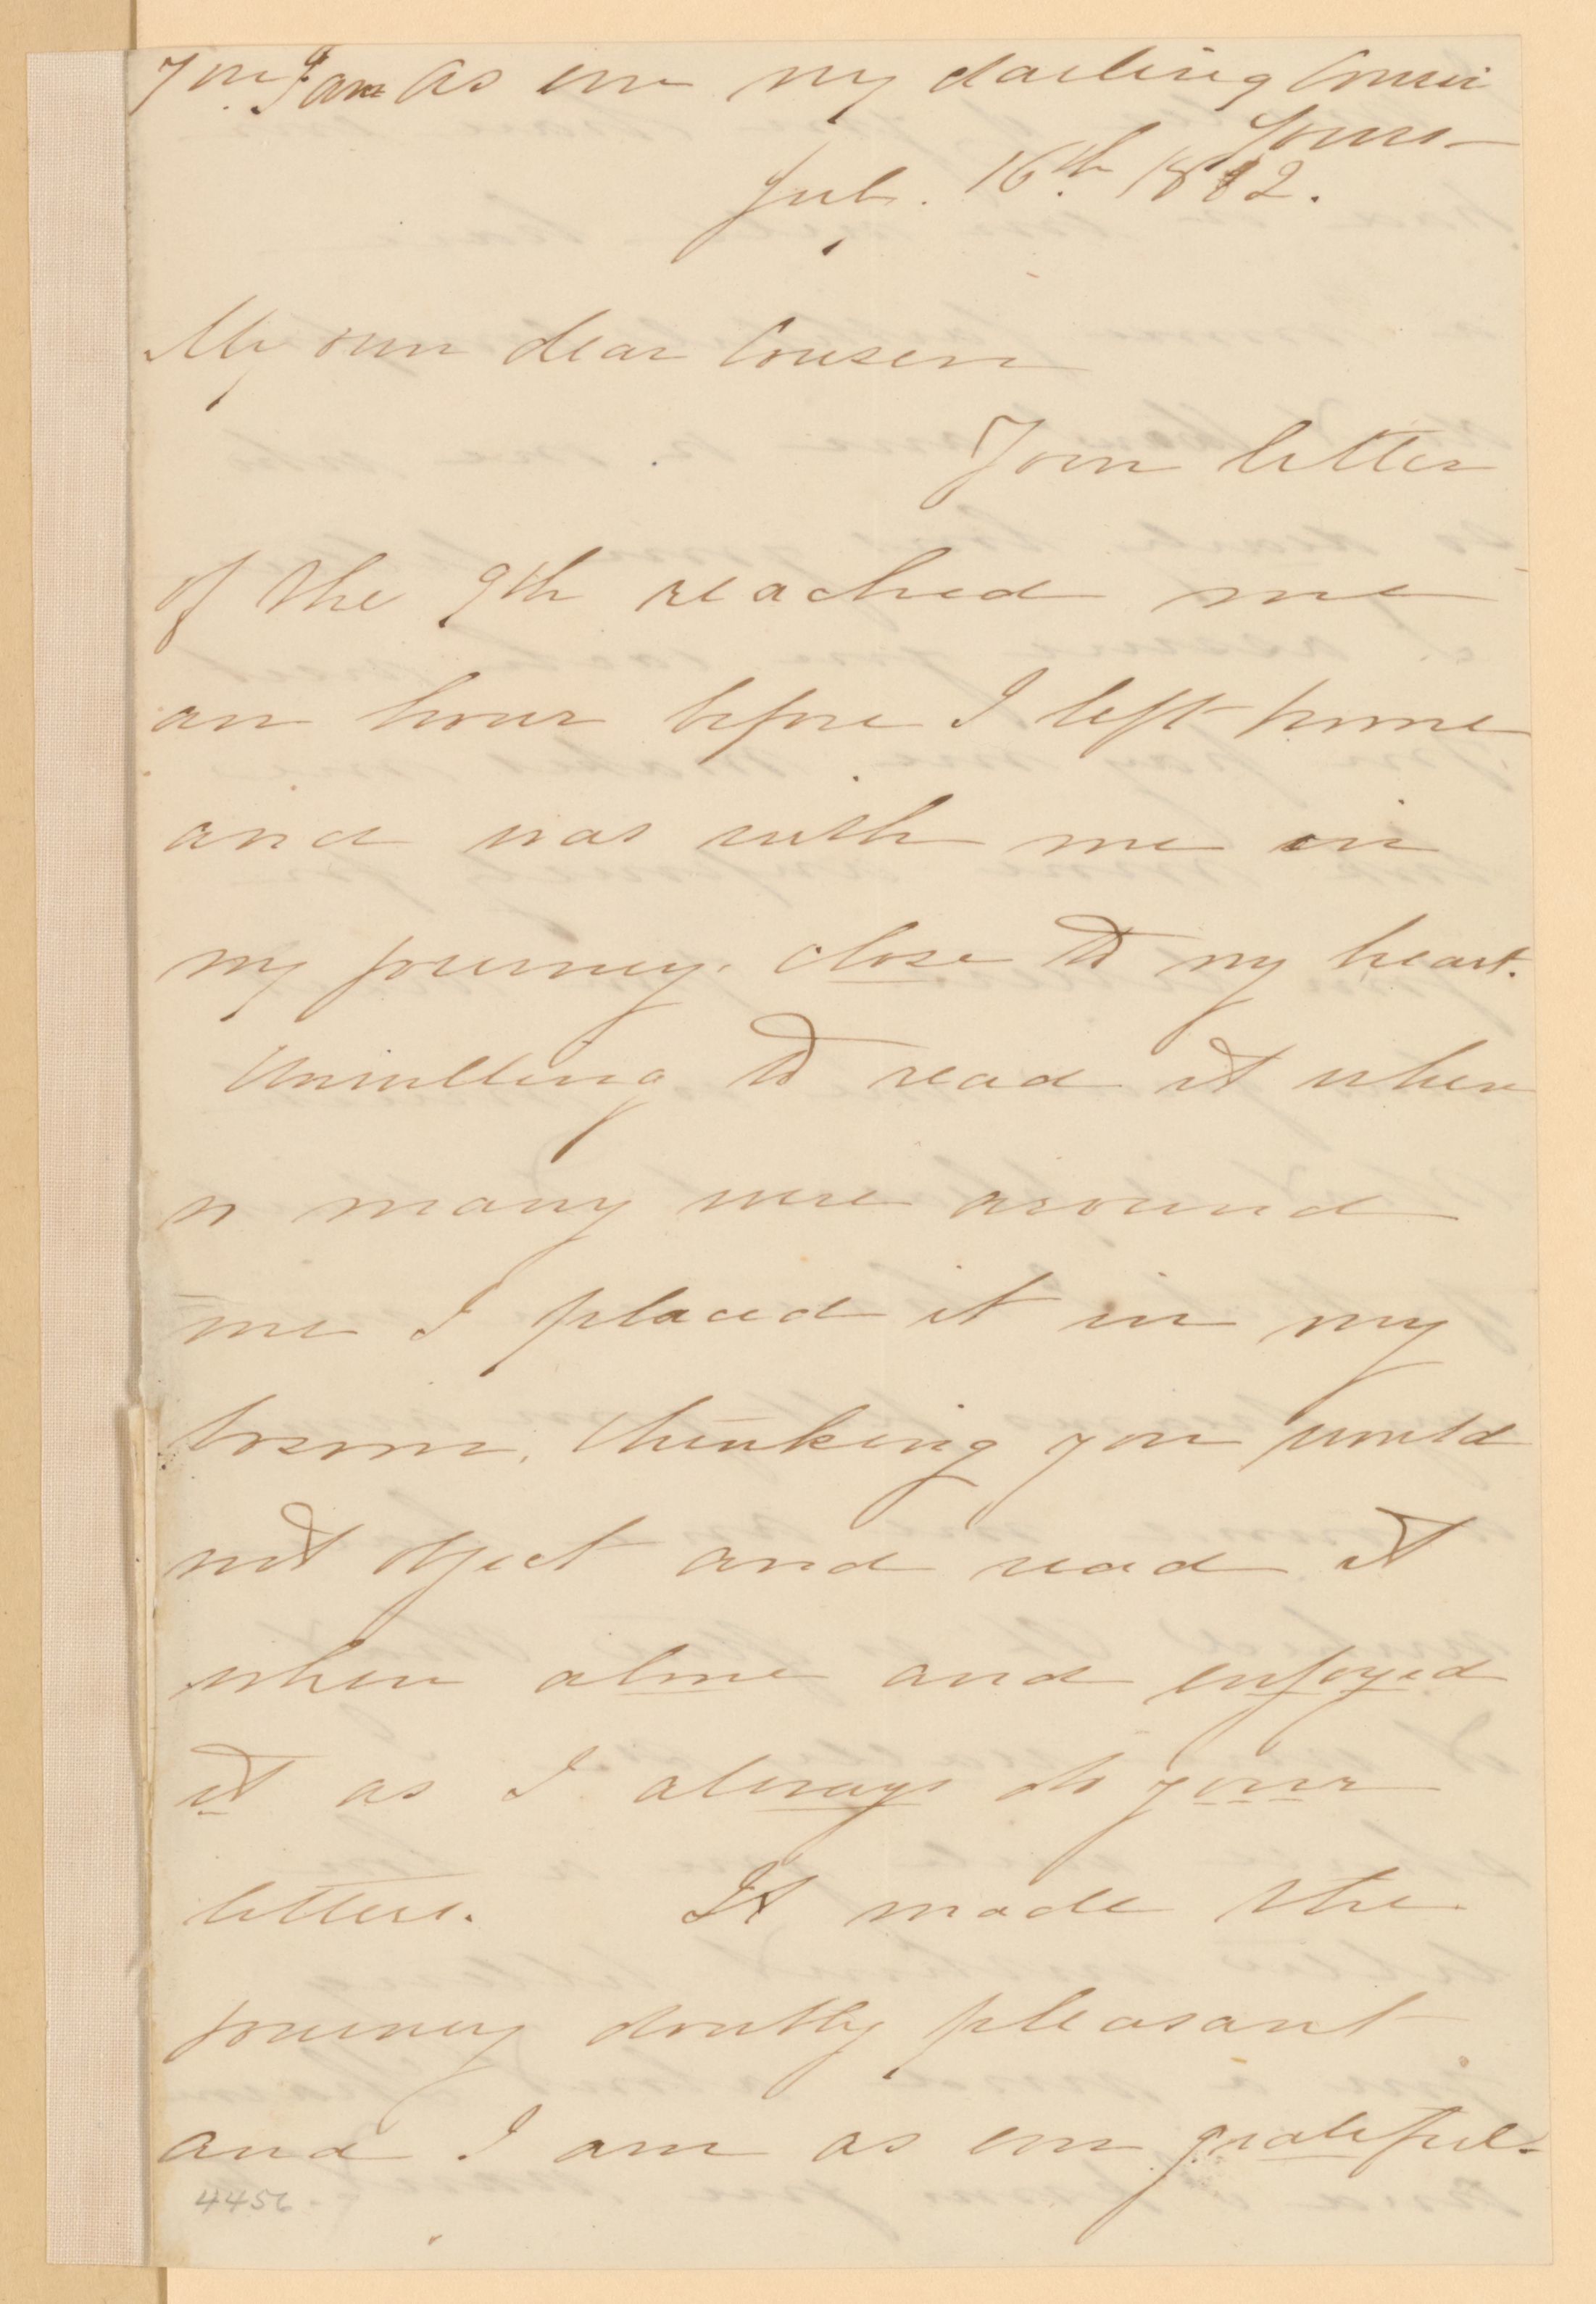 you I am as ever my darling Cousin
Yours—
July. 16th. 1882.
My own dear Cousin
Your letter
of the 9th reached me
an hour before I left home
and was with me in
my journey. close to my heart.
Unwilling to read it when
so many were around
me I placed it in my
bosom, thinking you would
not object and read it
when alone and enjoyed
it as I always do your
letters. It made the
journey doubly pleasant
and I am as ever grateful-
4456